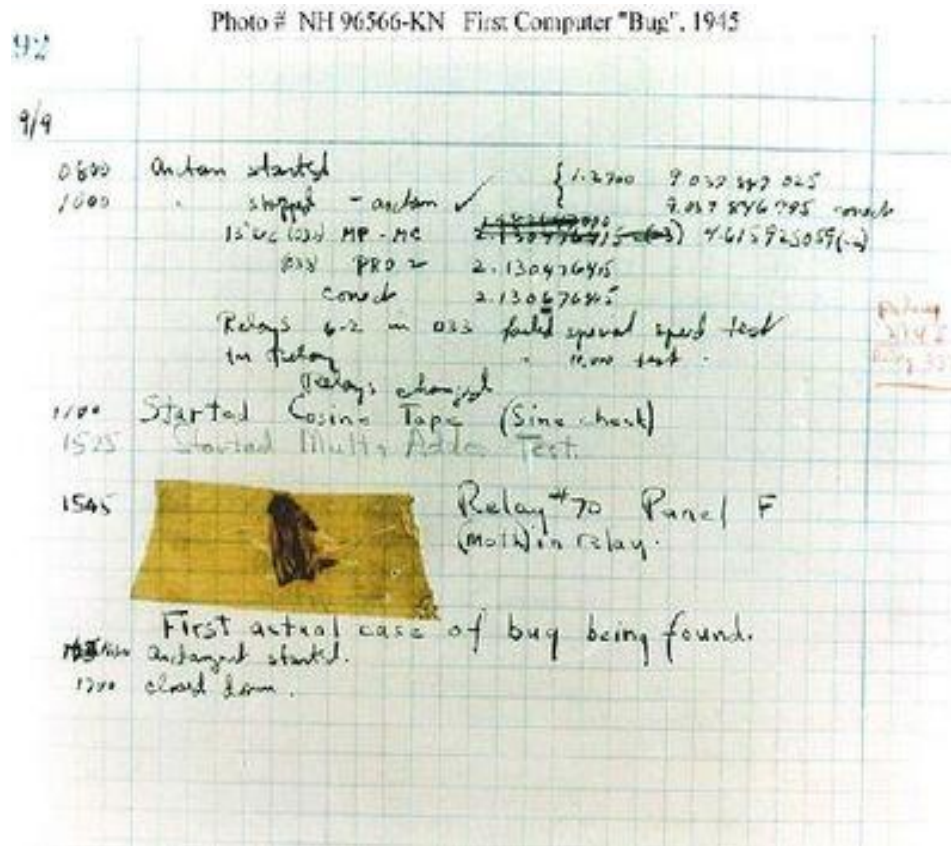 Photo # NH 96566-KN First Computer "Bug", 1945
92
9/9
0800 antan started
1000 " stopped - antan ✓ { 1.2700 9.037 847 025
9.037 846 795 correct
13"uc (033) MP - MC 2.130476415 4.615925059(-2)
033 PRO 2 2.130476415
correct 2.130676415
Relays 6-2 in 033 failed special speed test
in relay " 11,000 test .
Relays changed
1100 Started Cosine Tape (Sine check)
1525 Started Mult+ Adder Test.
1545 Relay #70 Panel F
(moth) in relay.
First actual case of bug being found.
antangent started.
1700 closed down.